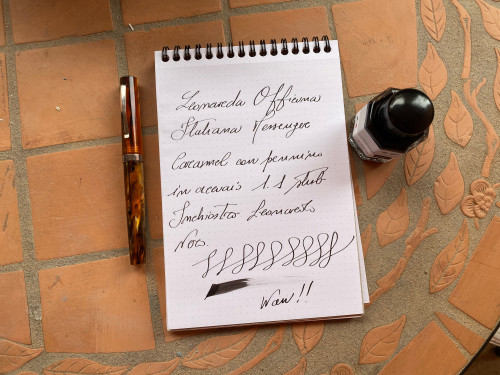 Leonardo Officina
Italiana Messenger
Caramel con pennino
in acciaio 1.1 stub
Inchiostro Leonardo
Nero
Wow!!